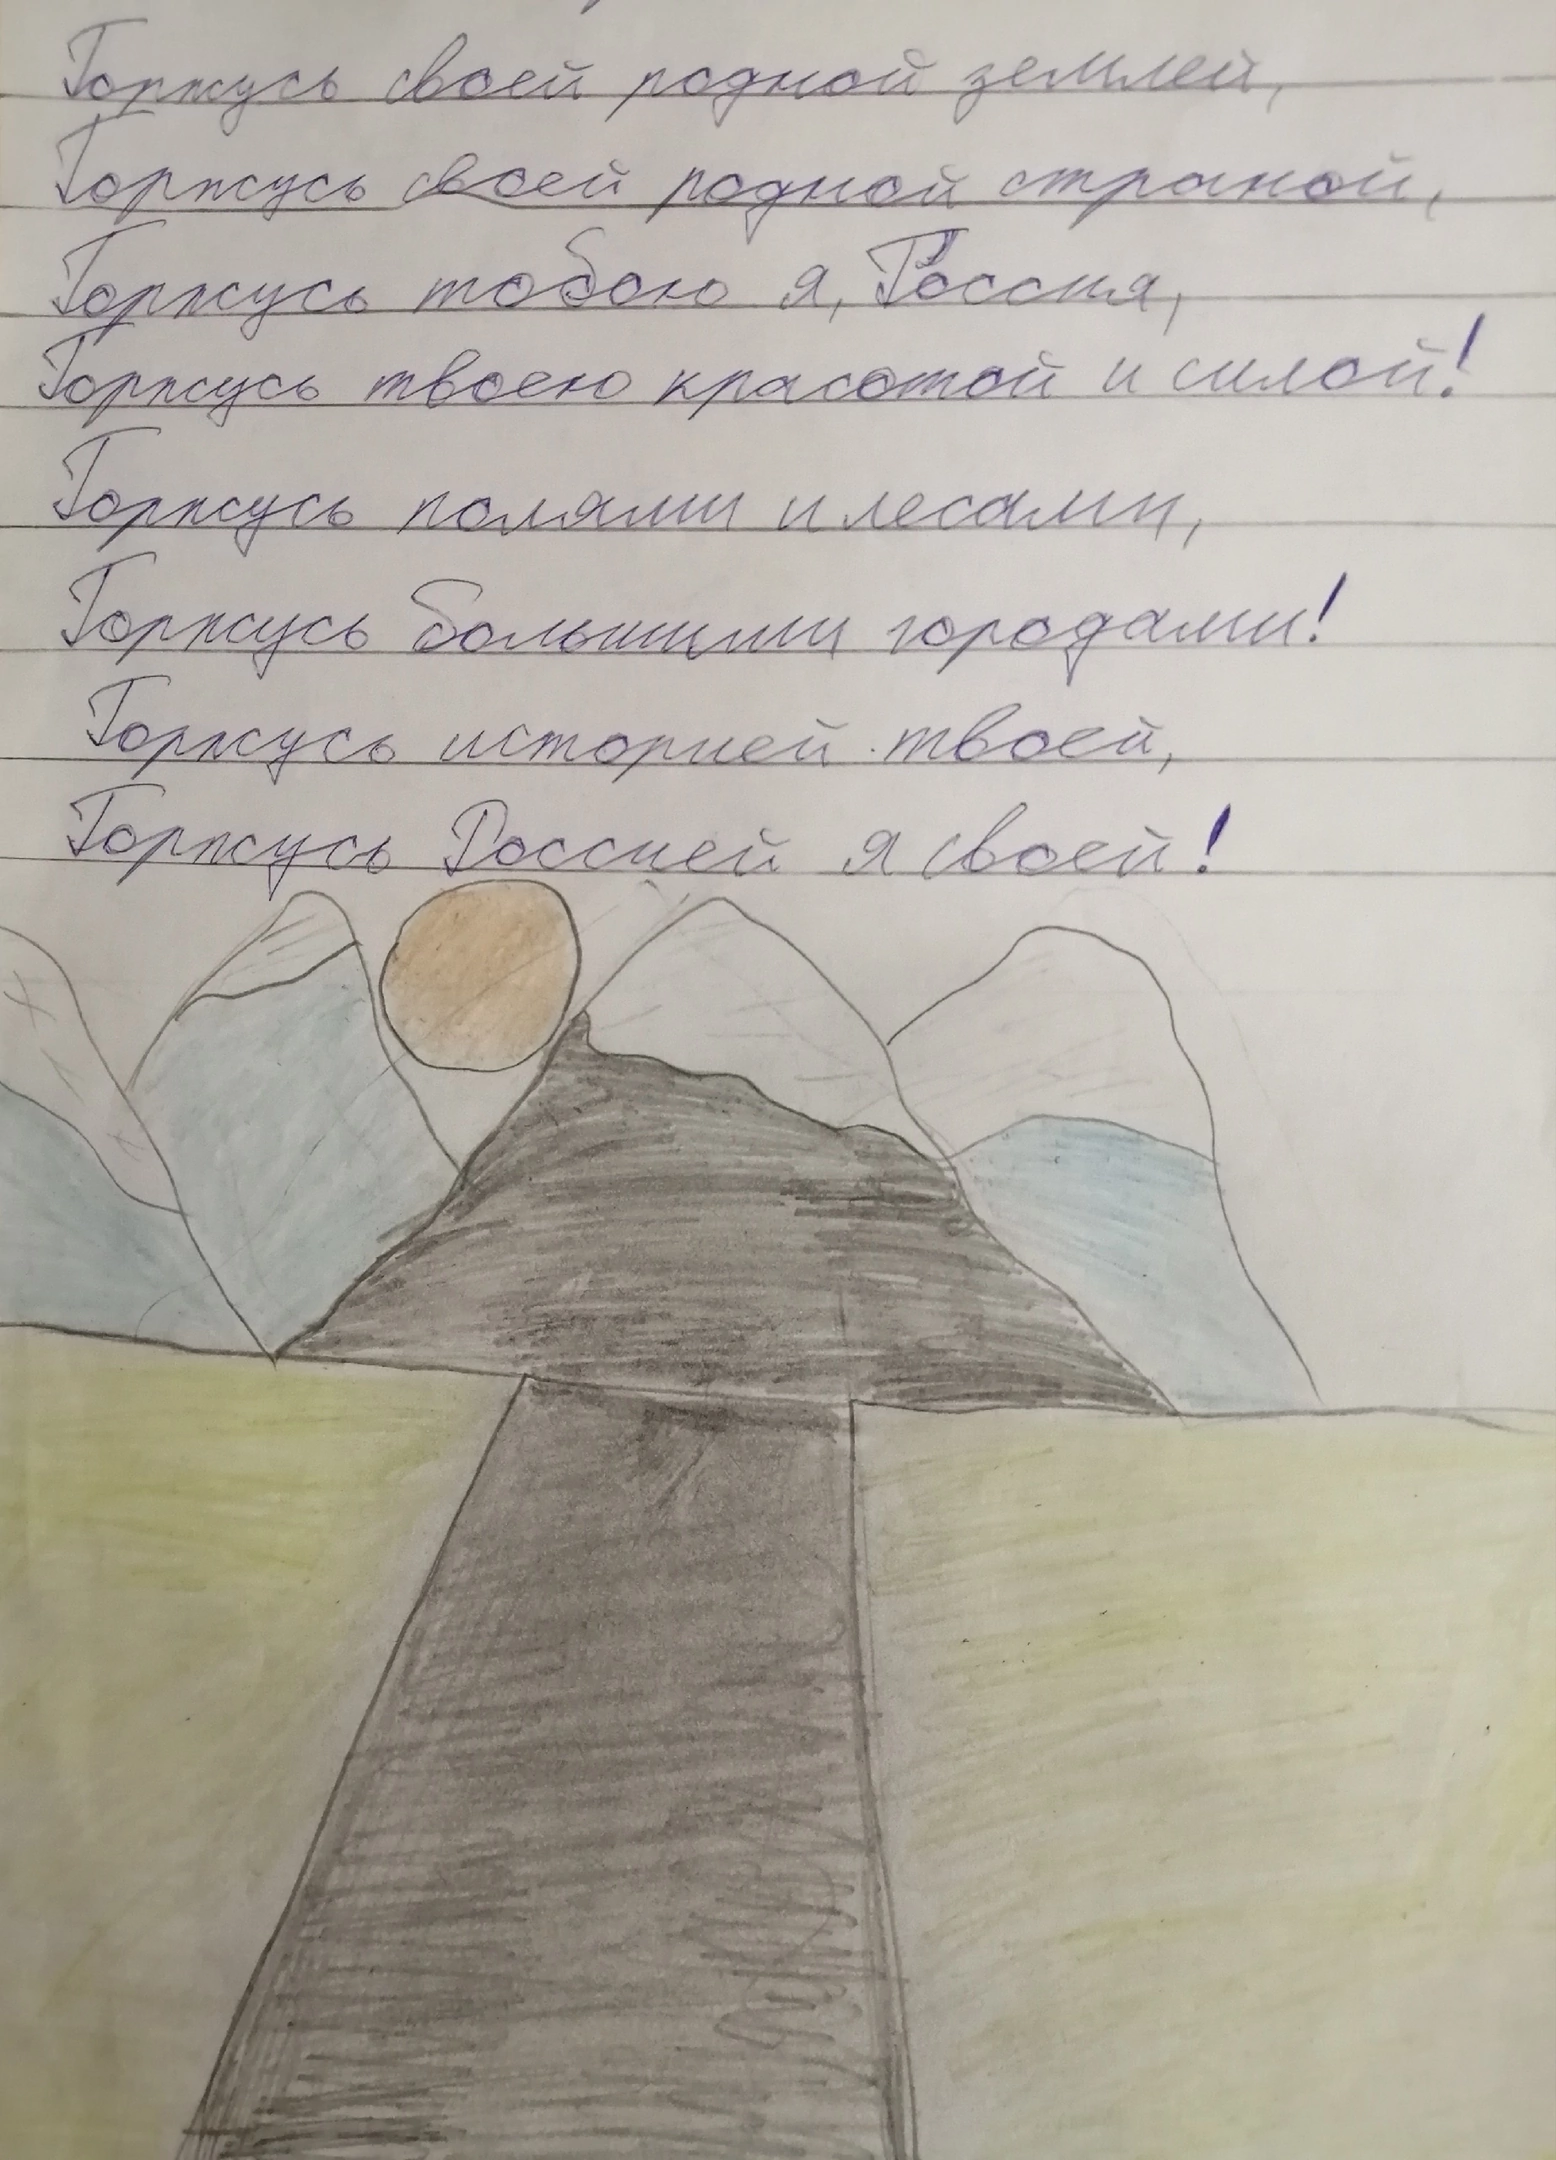 Горжусь своей родной землей,
Горжусь своей родной страной,
Горжусь тобою я, Россия,
Горжусь твоею красотой и силой!
Горжусь полями и лесами,
Горжусь большими городами!
Горжусь историей твоей,
Горжусь Россией я своей!